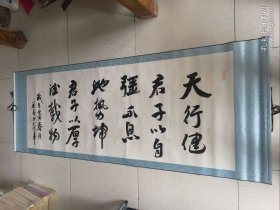 天行健
君子以自
彊不息
地勢坤
君子以厚
德載物